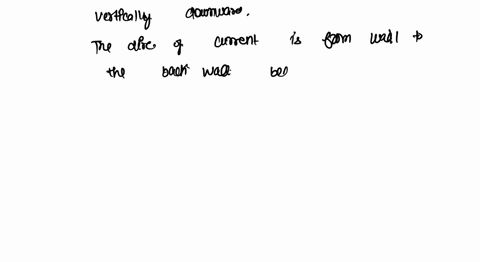 vertically downward.
The dirc of current is from wall to
the back wall bec